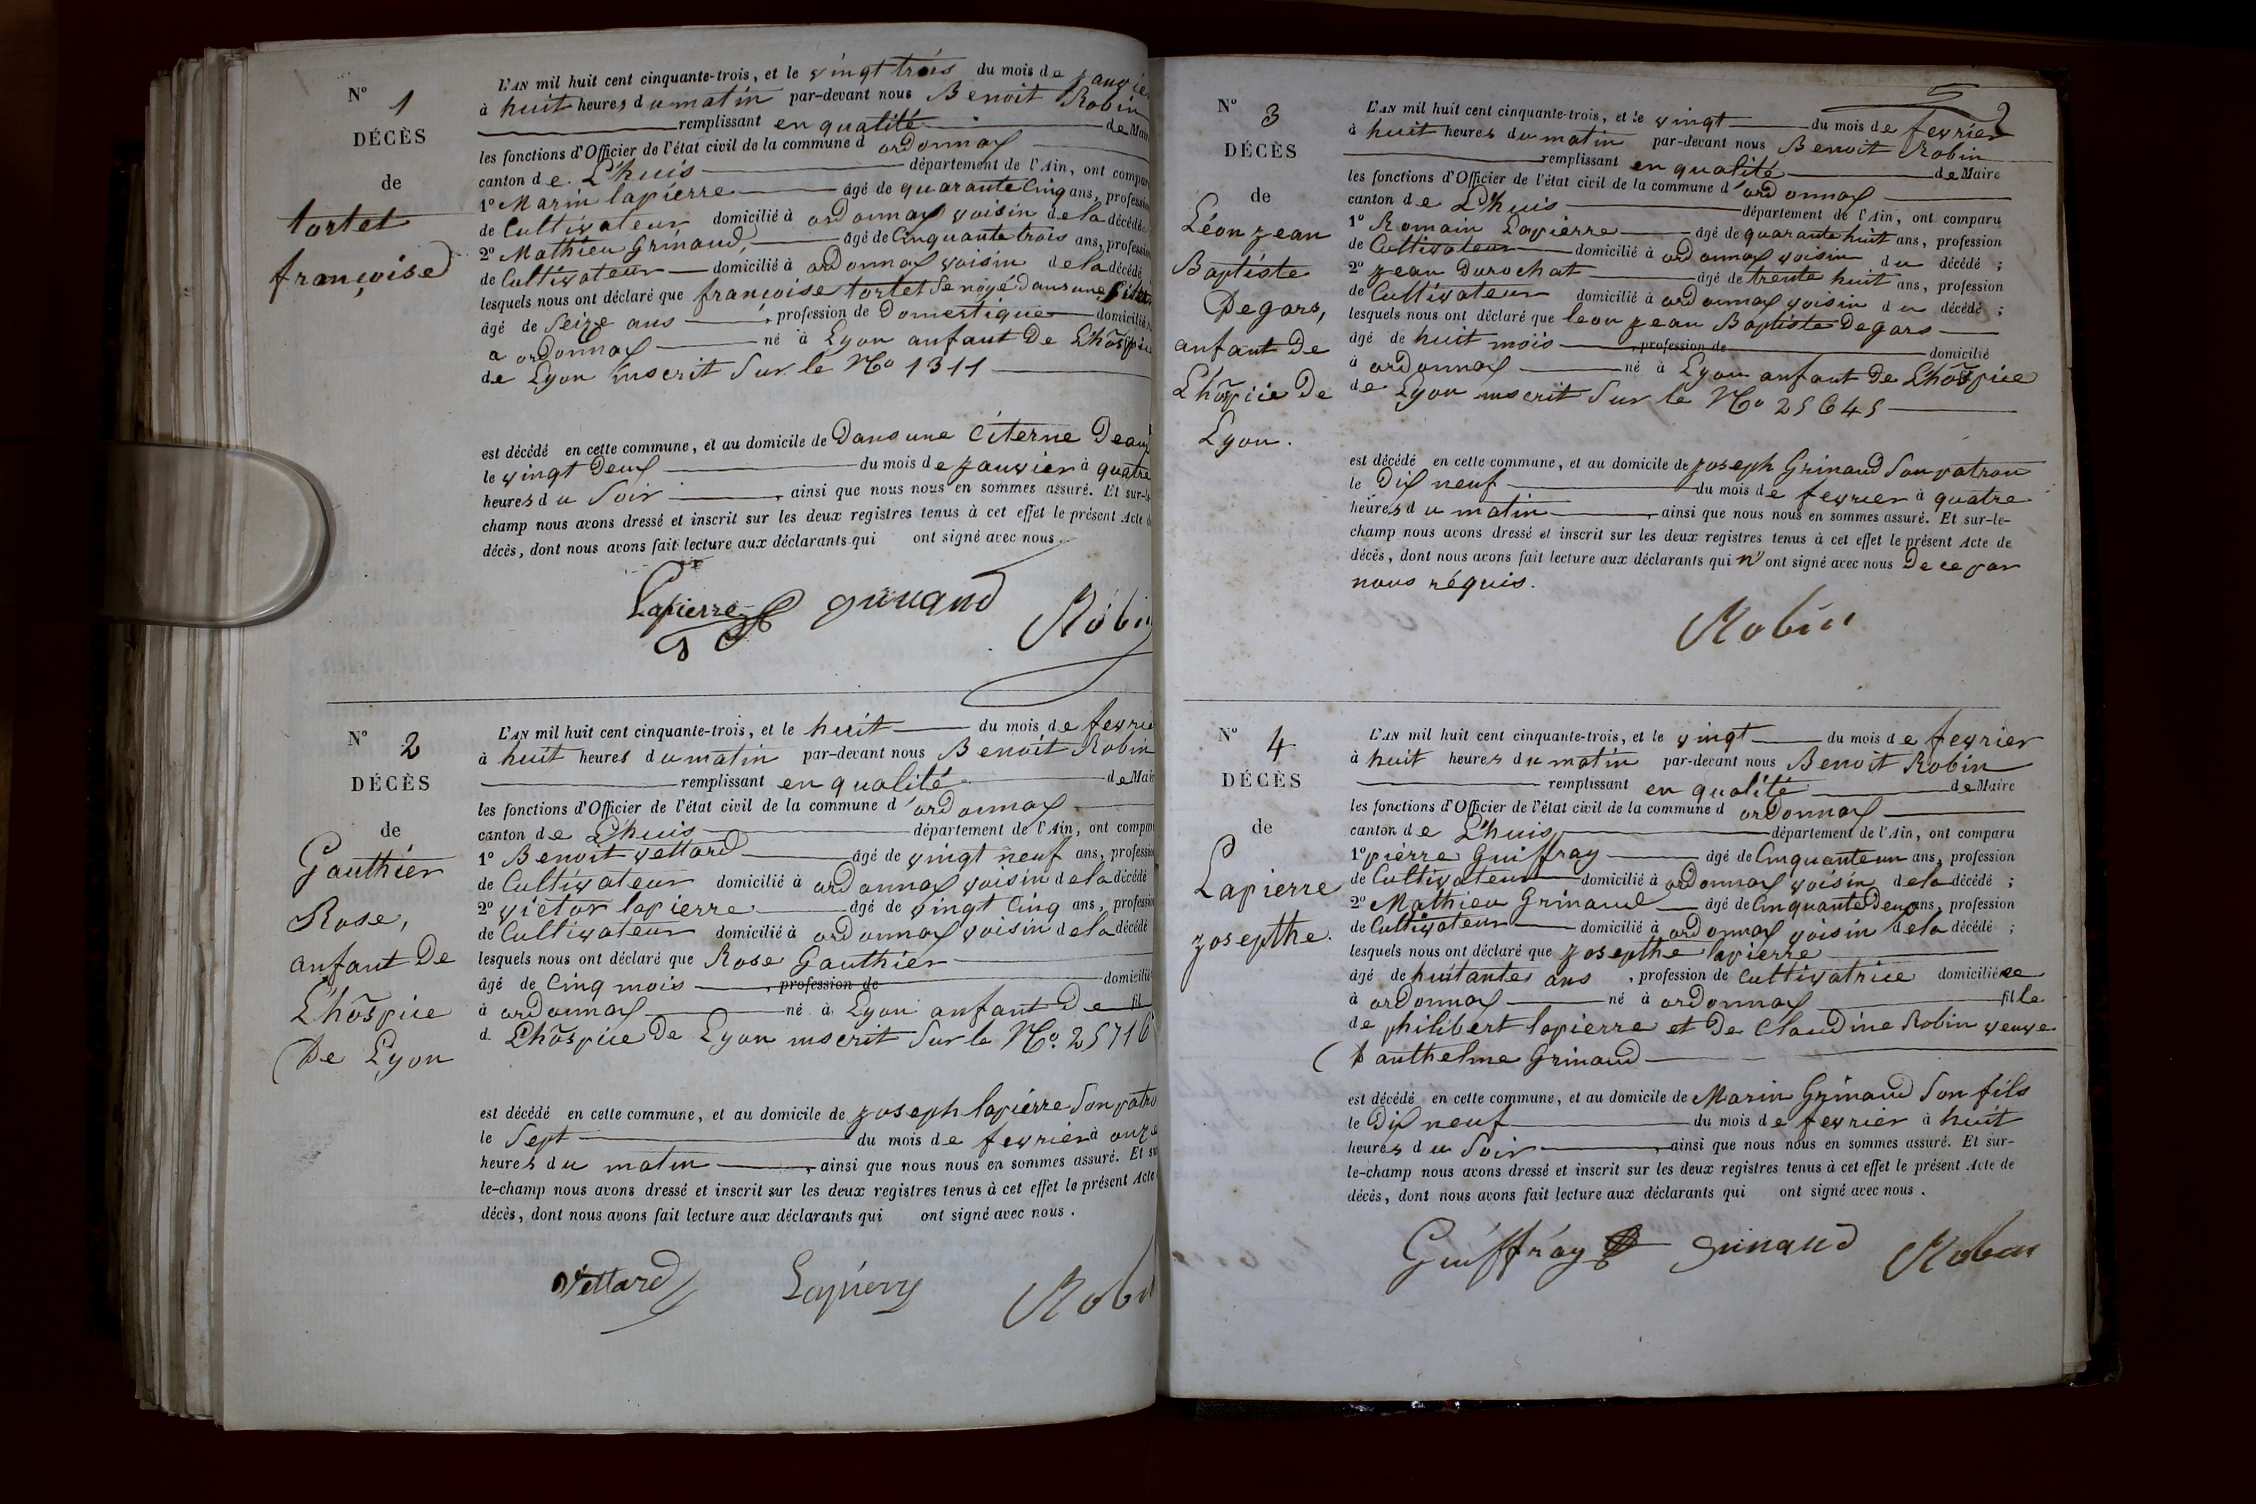 N° 1
DÉCÈS
de
tortet
françoise
L'AN mil huit cent cinquante-trois, et le vingt trois du mois de janvier
à huit heures du matin par-devant nous Benoit Robin
remplissant en qualité de Mair
les fonctions d'Officier de l'état civil de la commune d ordonnax
canton de L'huis département de l'Ain, ont compar
1° Marin lapierre âgé de quarante Cinq ans, profession
de Cultivateur domicilié à ordonnax voisin de la décédé
2° Mathieu Grinaud, âgé de Cinquante trois ans, profession
de Cultivateur domicilié à ordonnax voisin de la décédé
lesquels nous ont déclaré que françoise tortet Se noyé dans une
âgé de Seize ans, profession de Domestique domicilié
a ordonnax né à Lyon anfant De L'hospice
de Lyon inscrit Sur le No 1311
est décédé en cette commune, et au domicile de Dans une Citerne Deau
le vingt Deux du mois de janvier à quatre
heures du Soir, ainsi que nous nous en sommes assuré. Et sur-le
champ nous avons dressé et inscrit sur les deux registres tenus à cet effet le présent Acte d
décès, dont nous avons fait lecture aux déclarants qui ont signé avec nous.
Lapierre grinaud Robin
N° 2
DÉCÈS
de
Gauthier
Rose,
anfant De
L'hospice
De Lyon
L'AN mil huit cent cinquante-trois, et le huit du mois de fevrie
à huit heures du matin par-devant nous Benoit Robin
remplissant en qualité de Mair
les fonctions d'Officier de l'état civil de la commune d'ordonnax
canton de L'huis département de l'Ain, ont compar
1° Benoit vettard âgé de vingt neuf ans, profession
de Cultivateur domicilié à ordonnax voisin de la décédé
2° victor lapierre âgé de vingt Cinq ans, profession
de Cultivateur domicilié à ordonnax voisin de la décédé
lesquels nous ont déclaré que Rose Gauthier
âgé de Cinq mois, profession de domicilié
à ordonnax né à Lyon anfant De fil
d L'hospice De Lyon inscrit Sur le No. 25716
est décédé en cette commune, et au domicile de joseph lapierre Son patro
le Sept du mois de fevrier à onze
heures du matin, ainsi que nous nous en sommes assuré. Et su
le-champ nous avons dressé et inscrit sur les deux registres tenus à cet effet le présent Acte
décès, dont nous avons fait lecture aux déclarants qui ont signé avec nous.
Vettard Lapierre Robin
2
N° 3
DÉCÈS
de
Léon jean
Baptiste
Degors,
anfant De
L'hospice De
Lyon.
L'AN mil huit cent cinquante-trois, et le vingt du mois de fevrier
à huit heures du matin par-devant nous Benoit Robin
remplissant en qualité de Maire
les fonctions d'Officier de l'état civil de la commune d'ordonnax
canton de L'huis département de l'Ain, ont comparu
1° Romain Lapierre âgé de quarante huit ans, profession
de Cultivateur domicilié à ordonnax voisin du décédé ;
2° jean Durochat âgé de trente huit ans, profession
de Cultivateur domicilié à ordonnax voisin du décédé ;
lesquels nous ont déclaré que leon jean Baptiste Degors
âgé de huit mois, profession de domicilié
à ordonnax né à Lyon anfant De L'hospice
de Lyon inscrit Sur le No 25645
est décédé en cette commune, et au domicile de joseph Grinaud Son patron
le Dix neuf du mois de fevrier à quatre
heures du matin, ainsi que nous nous en sommes assuré. Et sur-le-
champ nous avons dressé et inscrit sur les deux registres tenus à cet effet le présent Acte de
décès, dont nous avons fait lecture aux déclarants qui n'ont signé avec nous De ce par
nous réquis.
Robin
N° 4
DÉCÈS
de
Lapierre
josepthe.
L'AN mil huit cent cinquante-trois, et le vingt du mois de fevrier
à huit heures du matin par-devant nous Benoit Robin
remplissant en qualité de Maire
les fonctions d'Officier de l'état civil de la commune d ordonnax
canton de L'huis département de l'Ain, ont comparu
1° pierre Guiffray âgé de Cinquante un ans, profession
de Cultivateur domicilié à ordonnax voisin de la décédé ;
2° Mathieu Grinaud âgé de Cinquante Deux ans, profession
de Cultivateur domicilié à ordonnax voisin de la décédé ;
lesquels nous ont déclaré que josepthe lapierre
âgé de huitante ans, profession de Cultivatrice domiciliée
à ordonnax né à ordonnax fille
de philibert lapierre et De Claudine Robin veuve
D'anthelme Grinaud
est décédé en cette commune, et au domicile de Marin Grinaud Son fils
le Dix neuf du mois de fevrier à huit
heures du Soir, ainsi que nous nous en sommes assuré. Et sur-
le-champ nous avons dressé et inscrit sur les deux registres tenus à cet effet le présent Acte de
décès, dont nous avons fait lecture aux déclarants qui ont signé avec nous.
Guiffray grinaud Robin